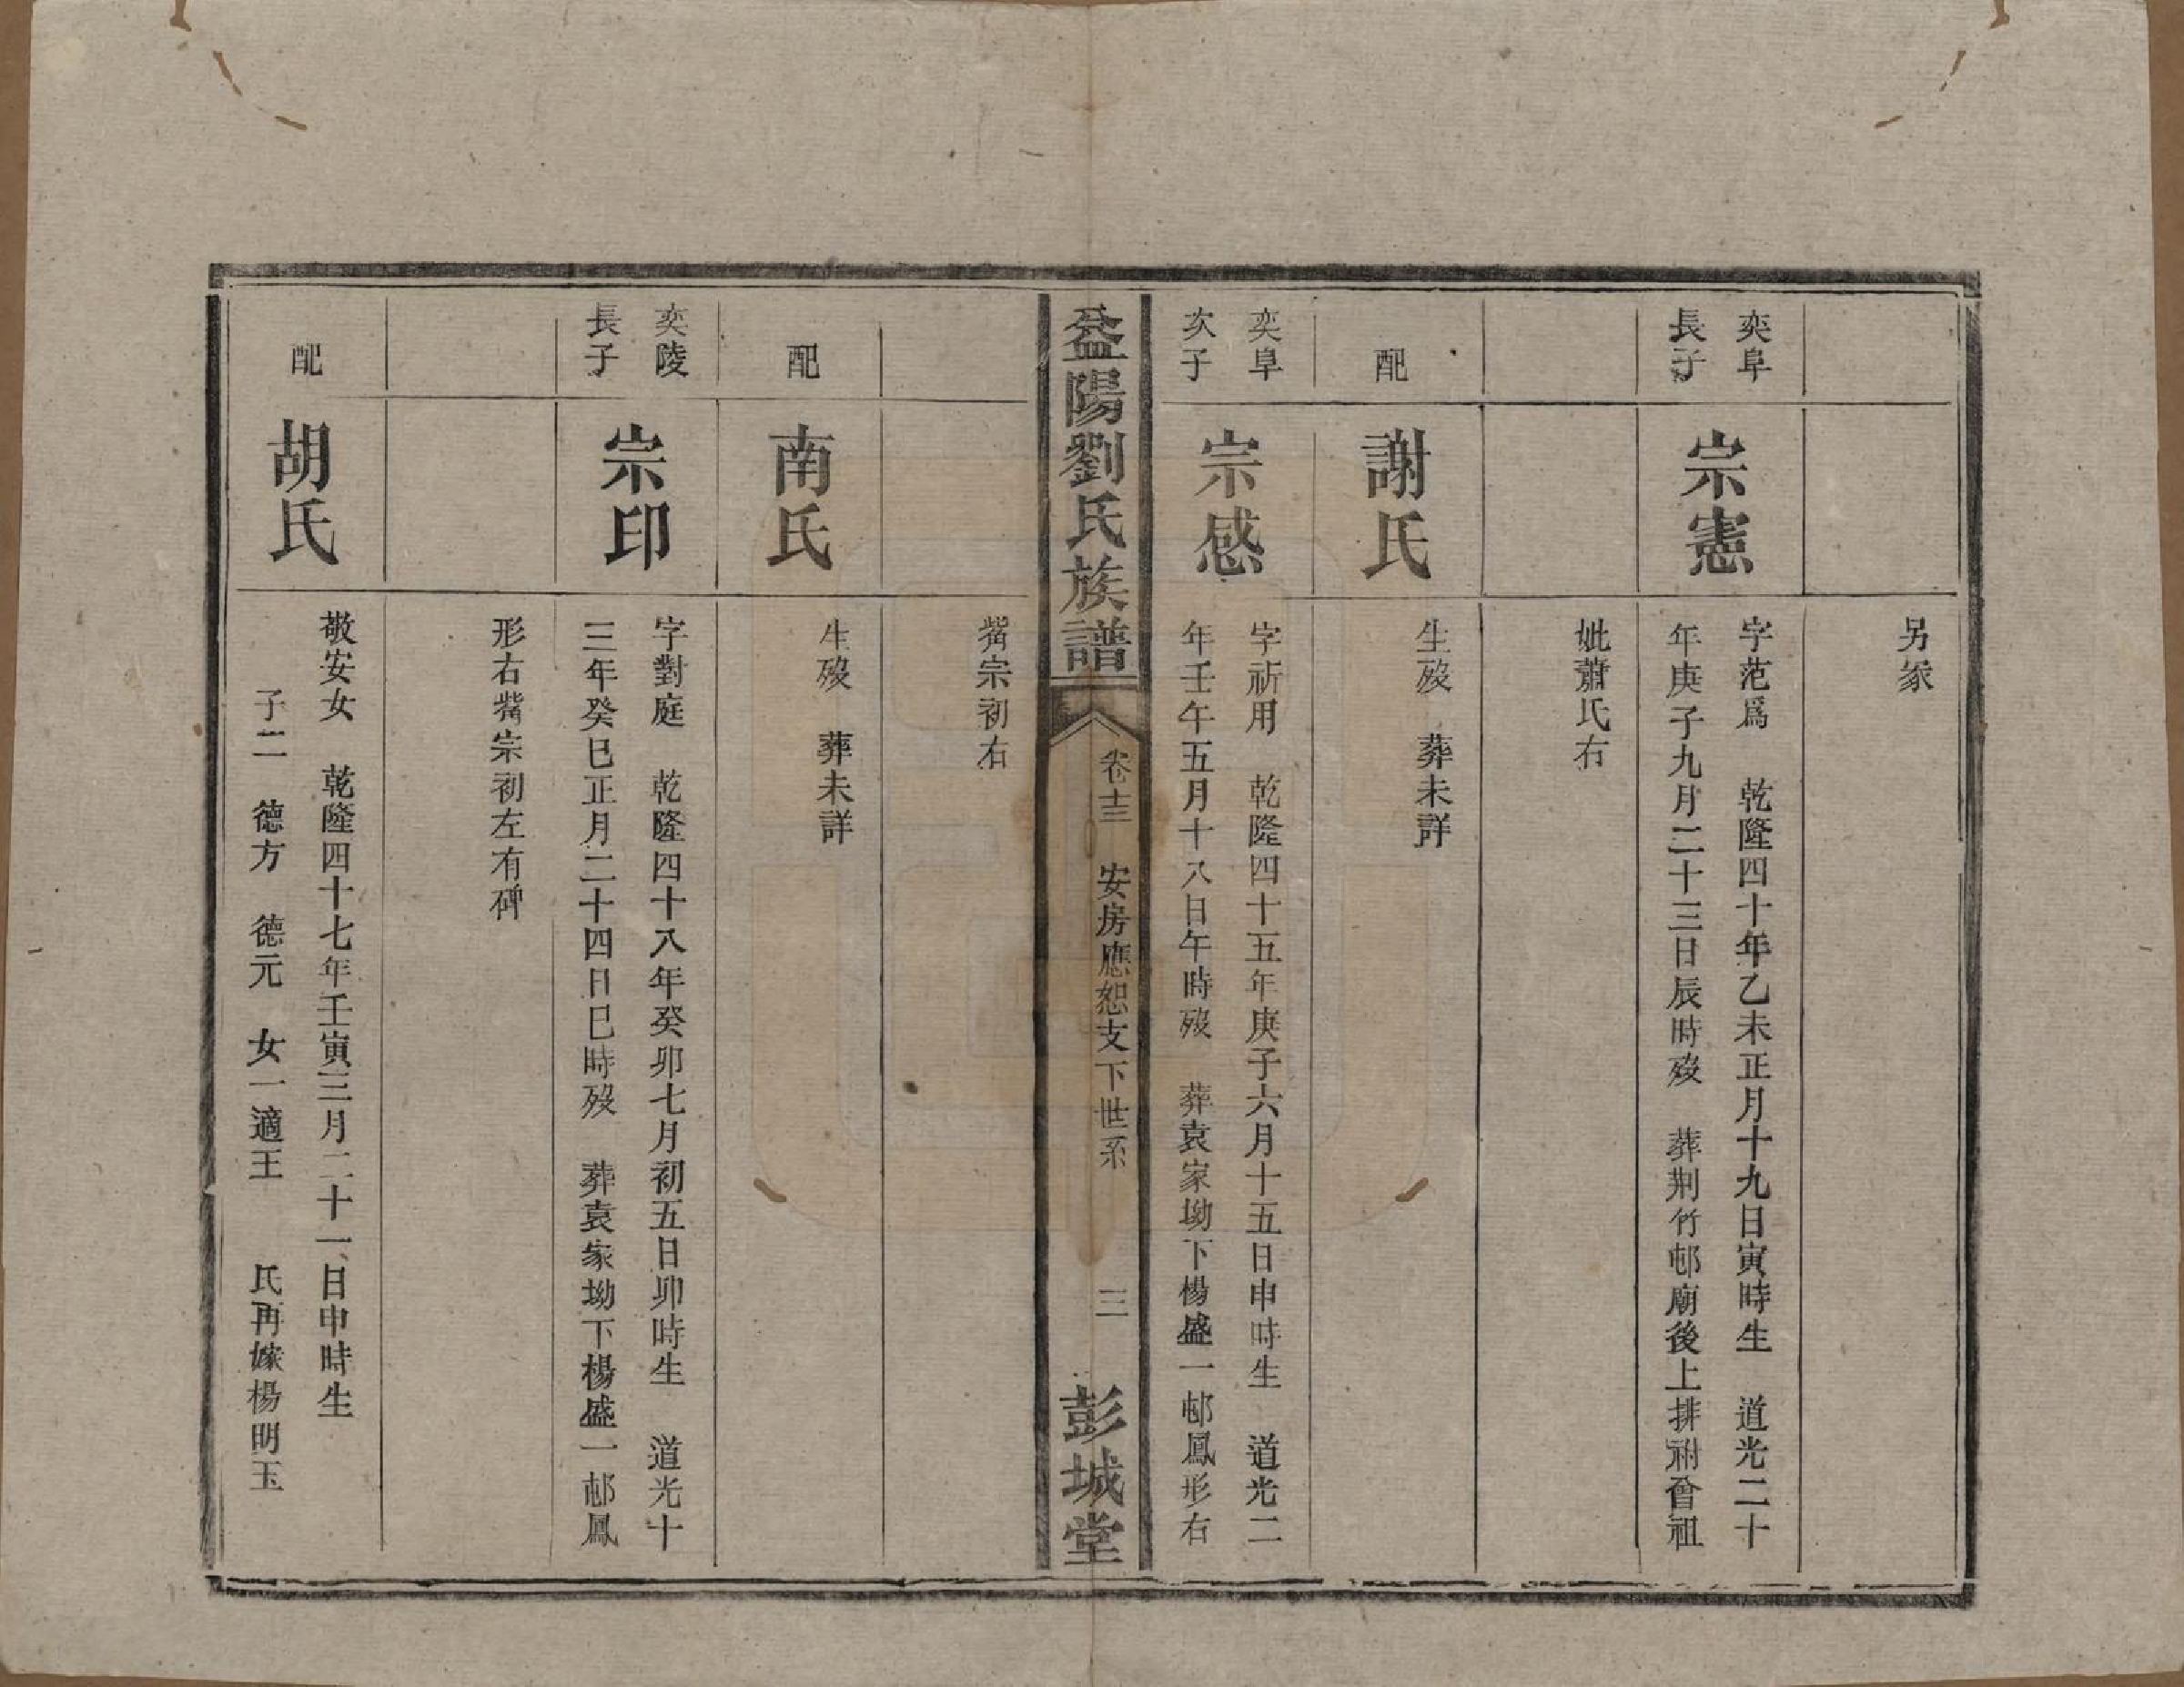 另冢
奕阜
長子
宗憲
字范爲　乾隆四十年乙未正月十九日寅時生　道光二十
年庚子九月二十三日辰時歿　葬荆竹邨廟後上排祔曾祖
妣蕭氏右
配
謝氏
生歿　葬未詳
奕阜
次子
宗感
字祈用　乾隆四十五年庚子六月十五日申時生　道光二
年壬午五月十八日午時歿　葬袁家坳下楊盛一邨鳳形右
益陽劉氏族譜
卷十三　安房應恕支下世系　三
彭城堂
觜宗初右
配
南氏
生歿　葬未詳
奕陵
長子
宗印
字對庭　乾隆四十八年癸卯七月初五日卯時生　道光十
三年癸巳正月二十四日巳時歿　葬袁家坳下楊盛一邨鳳
形右觜宗初左有碑
配
胡氏
敬安女　乾隆四十七年壬寅三月二十一日申時生
子二　德方　德元　女一適王　氏再嫁楊明玉